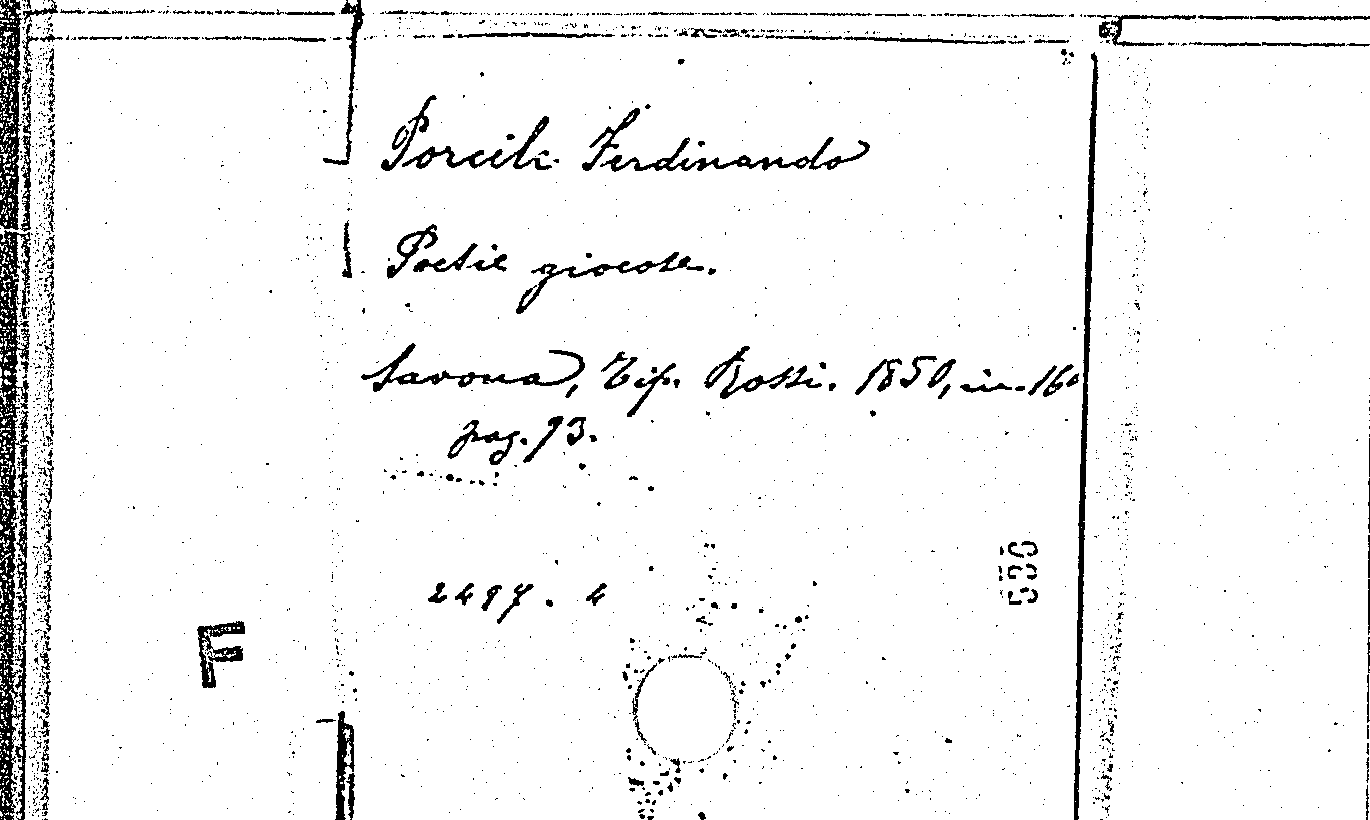 Porcile Ferdinando
Poesie giocose.
Savona, Tip. Rossi. 1850, in-16°
pag. 93.
2497. 4
F